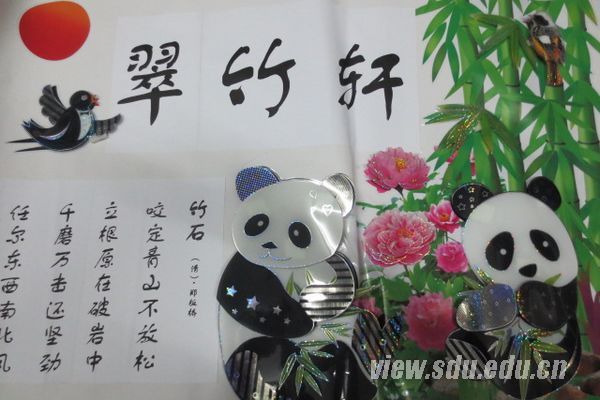 翠竹轩
竹石
(清)·郑板桥
咬定青山不放松
立根原在破岩中
千磨万击还坚劲
任尔东西南北风
view.sdu.edu.cn